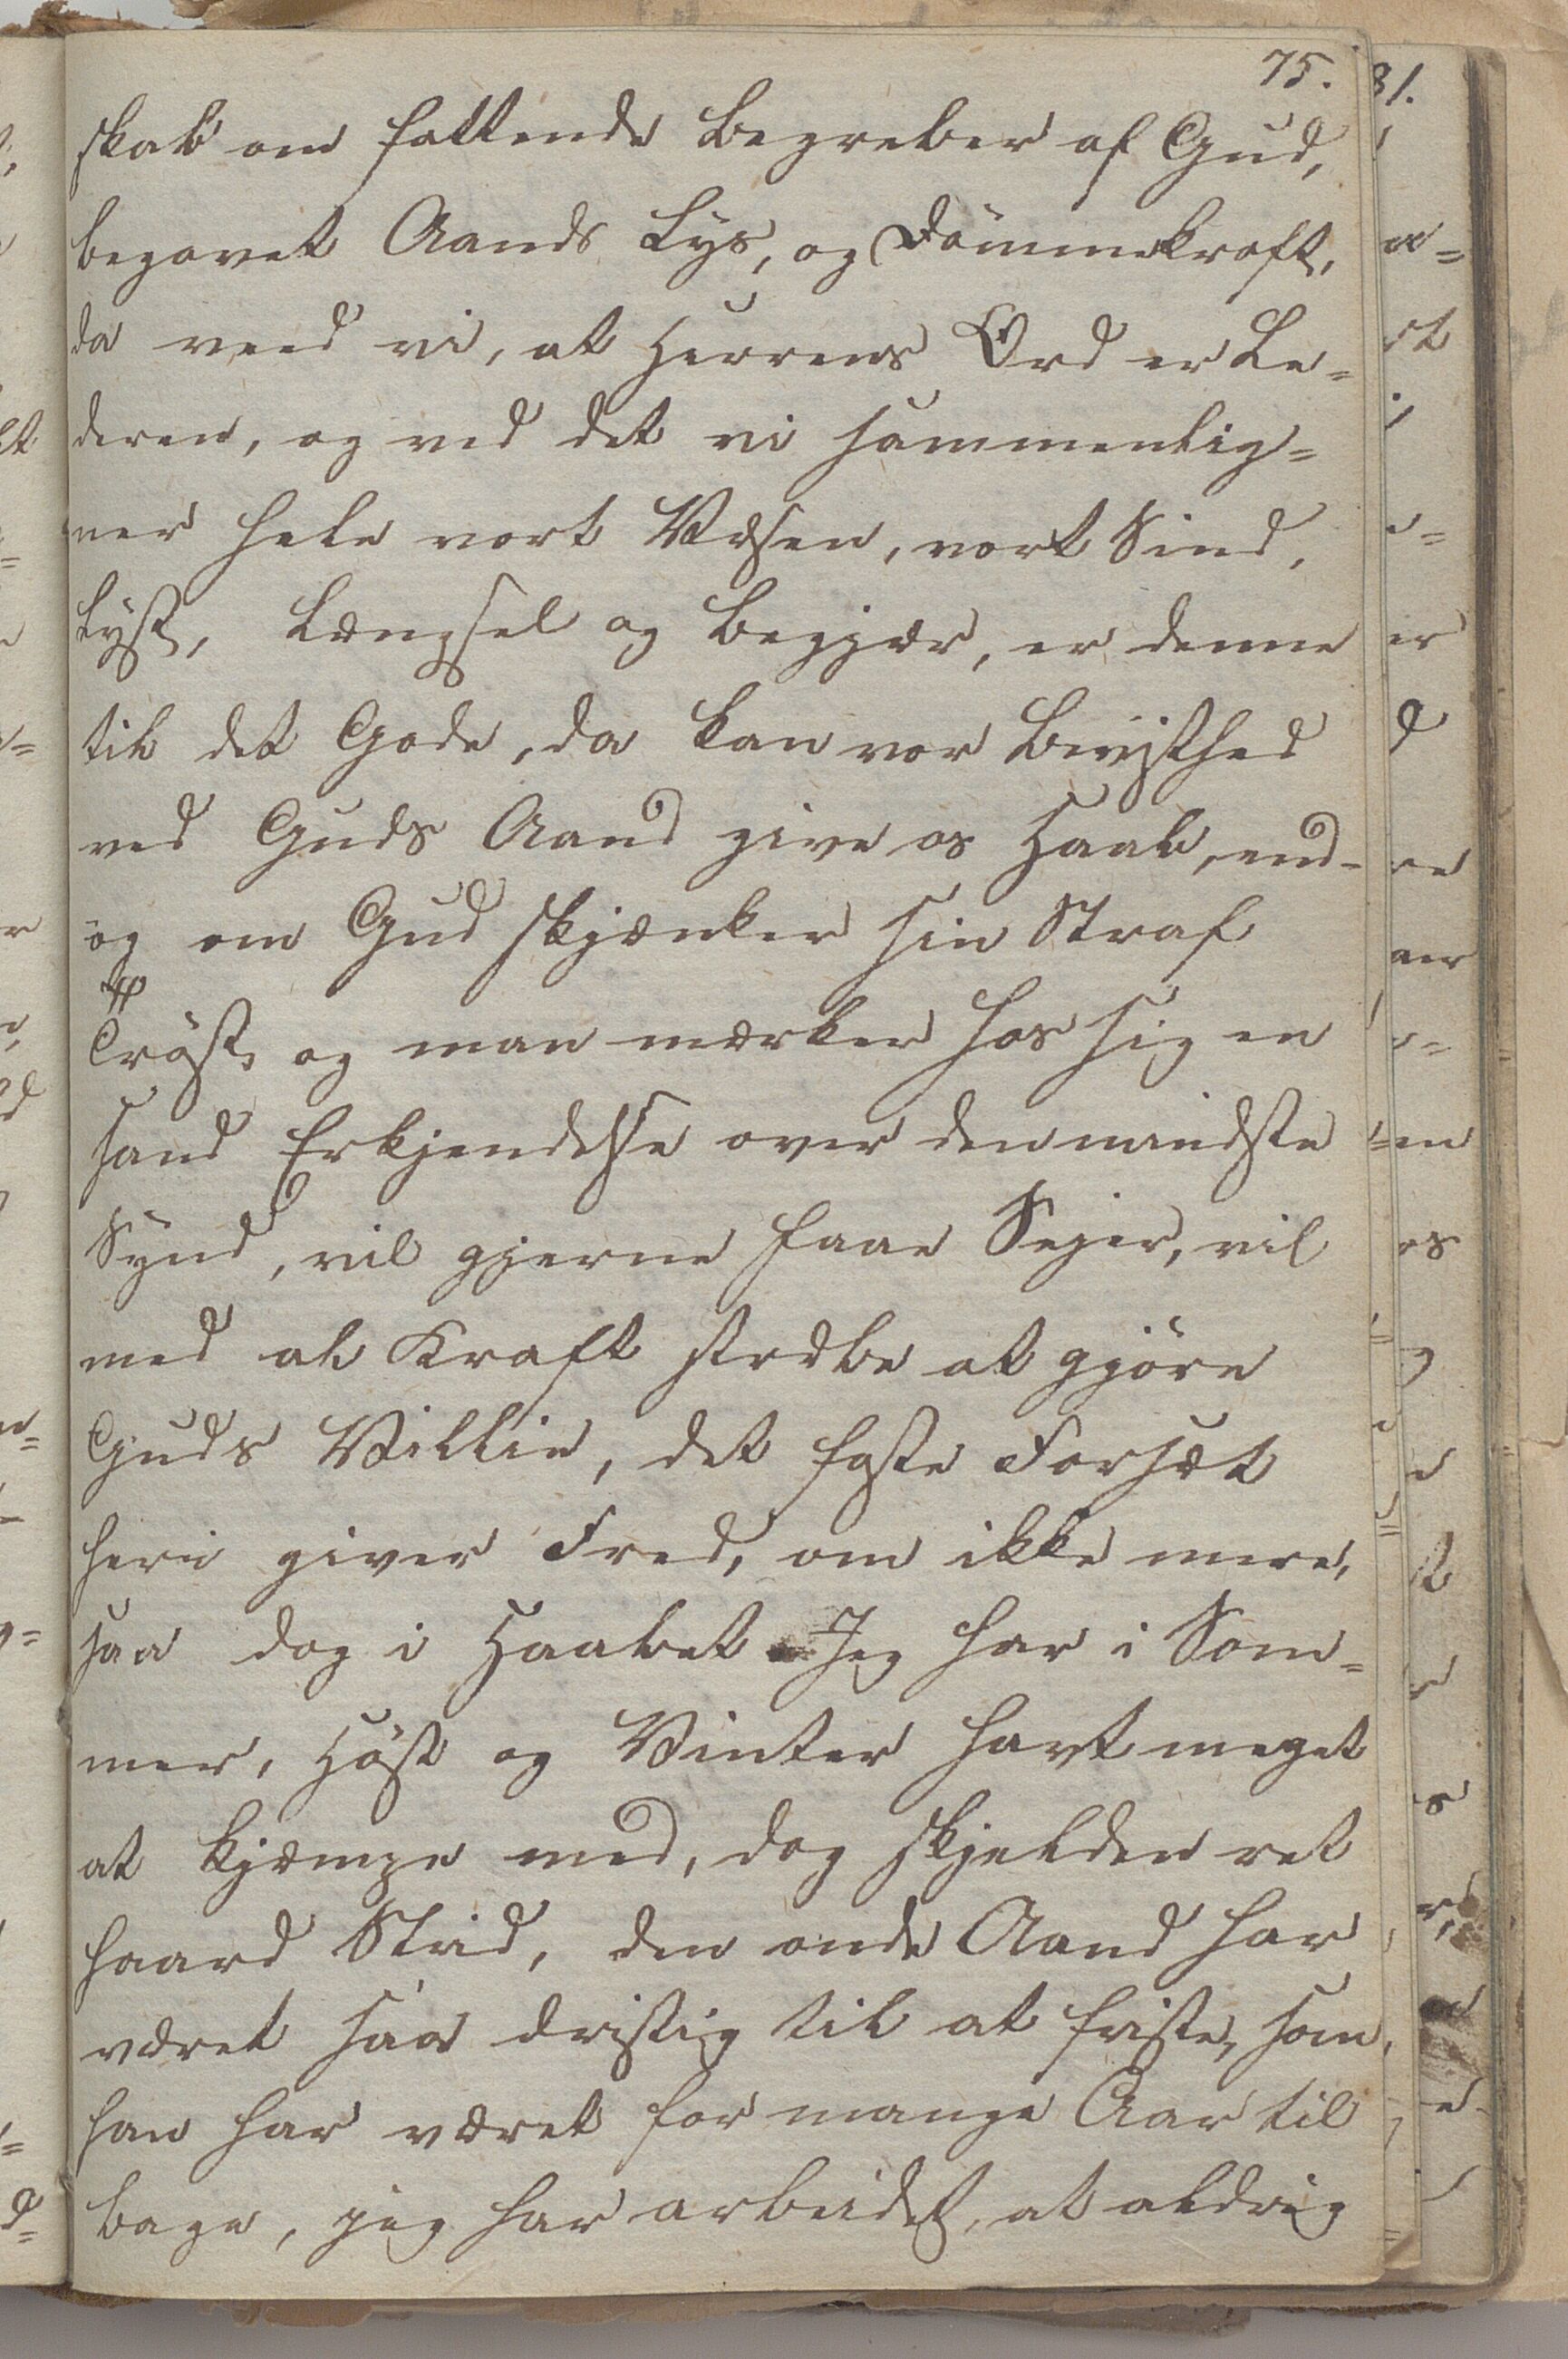 75.
skab om fattende Begreber af Gud,
begavet Aands Lys, og Dømmekraft,
da veed vi, at Herrens Ord er Le=
deren, og ved det vi sammenlig=
ner hele vort Væsen, vort Sind,
Lyst, Længsel og Begjær, er denne
til det Gode, da kan vor Bevisthed
ved Guds Aand give os Haab, end=
og om Gud skjænker sin Straf
Trøst, og man mærker hos sig en
sand Erkjendelse over den mindste
Synd, vil gjerne faae Sejer, vil
med al Kraft stræbe at gjøre
Guds Villie, det faste Forsæt
heri giver Fred, om ikke mere,
saa dog i Haabet. Jeg har i Som=
mer, Høst og Vinter havt meget
at kjæmpe med, dog skjelden ret
haard Strid, den onde Aand har
været saa dristig til at friste, som
han har været for mange Aar til
bage, jeg har arbeidet, at aldrig
81.